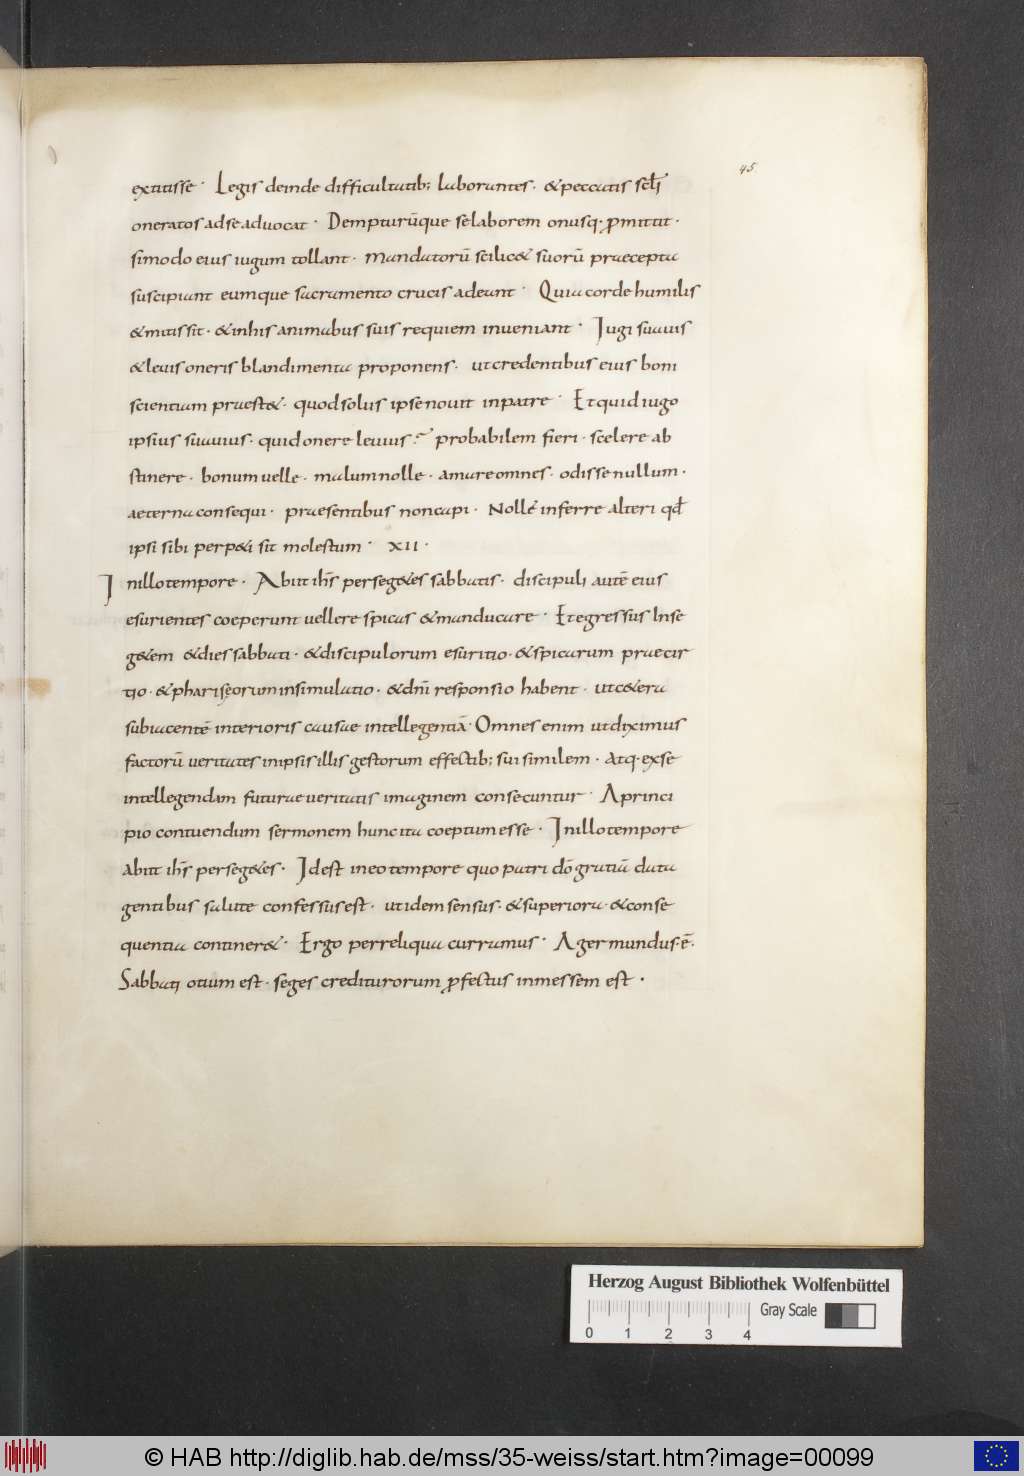 45
extitisse · Legis deinde difficultatib; laborantes · & peccatis sc̄li
oneratos ad se advocat · Dempturūque se laborem onusq· p̄mittit ·
si modo eius iugum tollant · mandatorū scilic& suorū praecepta
suscipiant eumque sacramento crucis adeant · Quia corde humilis
& mitis sit · & in his animabus suis requiem inveniant · Jugi suavis
& levis oneris blandimenta proponens · ut credentibus eius boni
scientiam praest& · quod solus ipse novit in patre · Et quid iugo
ipsius suavius · quid onere levius? probabilem fieri · scelere ab
stinere · bonum velle · malum nolle · amare omnes · odisse nullum ·
aeterna consequi · praesentibus non capi · Nolle inferre alteri qđ
ipsi sibi perp&i sit molestum · XII ·
Jn illo tempore · Abiit ih̄s per seg&es sabbatis · discipuli autē eius
esurientes coeperunt vellere spicas & manducare · Et egressus In se
g&em & dies sabbati · & discipulorum esuritio · & spicarum praecir
tio · & phariseorum insimulatio · & dn̄i responsio habent · ut c&era
subiacentē interioris causae intellegentiā · Omnes enim ut diximus
factorū veritates in ipsis illis gestorum effectib; sui similem · atq· ex se
intellegendam futurae veritatis imaginem consecuntur · A princi
pio contuendum sermonem hunc ita coeptum esse · Jn illo tempore
abiit ih̄s per seg&es · Jd est in eo tempore quo patri dō gratiā data
gentibus salute confessus est · ut idem sensus · & superiora · & conse
quentia contineret& · Ergo per reliqua curramus · Ager mundus · ē ·
Sabbati otium est · seges crediturorum p̄fectus in messem est ·
Herzog August Bibliothek Wolfenbüttel
Gray Scale
0 1 2 3 4
© HAB http://diglib.hab.de/mss/35-weiss/start.htm?image=00099